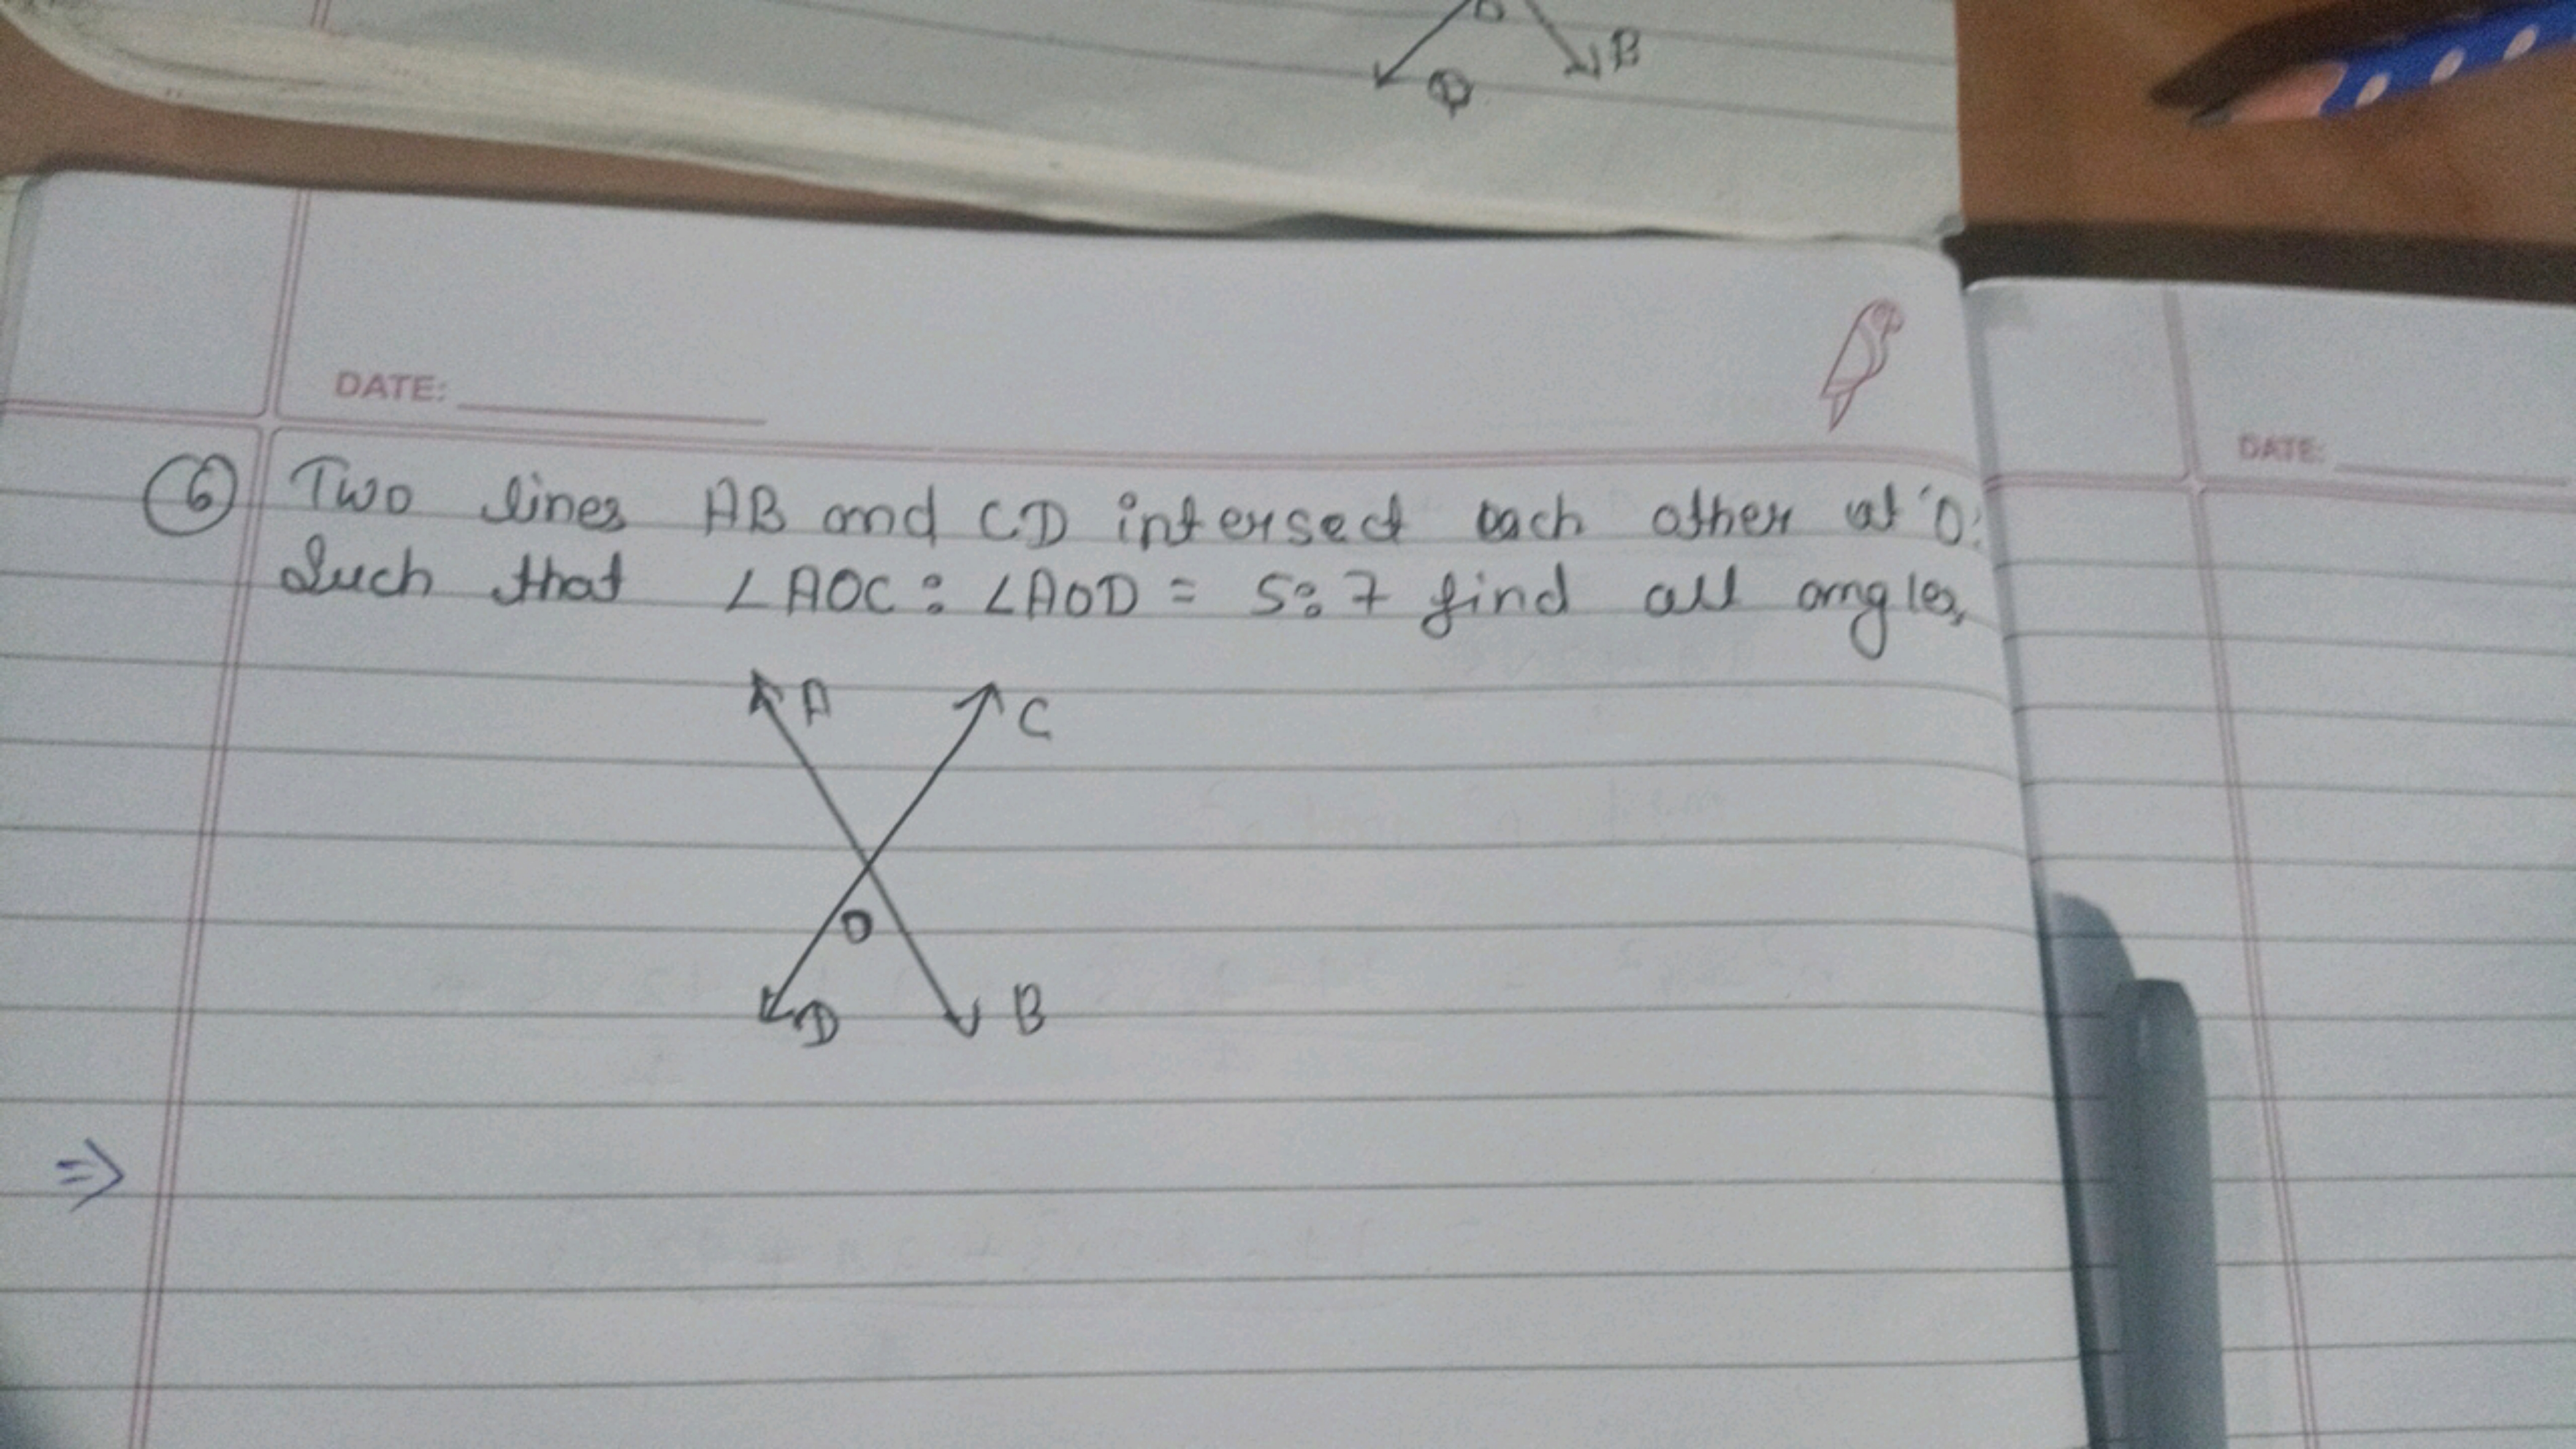 O
B
D
DATE:
DATE:
6 Two lines AB and CD intersect each other at 'O'.
Such that ∠AOC : ∠AOD = 5:7 find all angles,
A
C
O
D
B
⇒